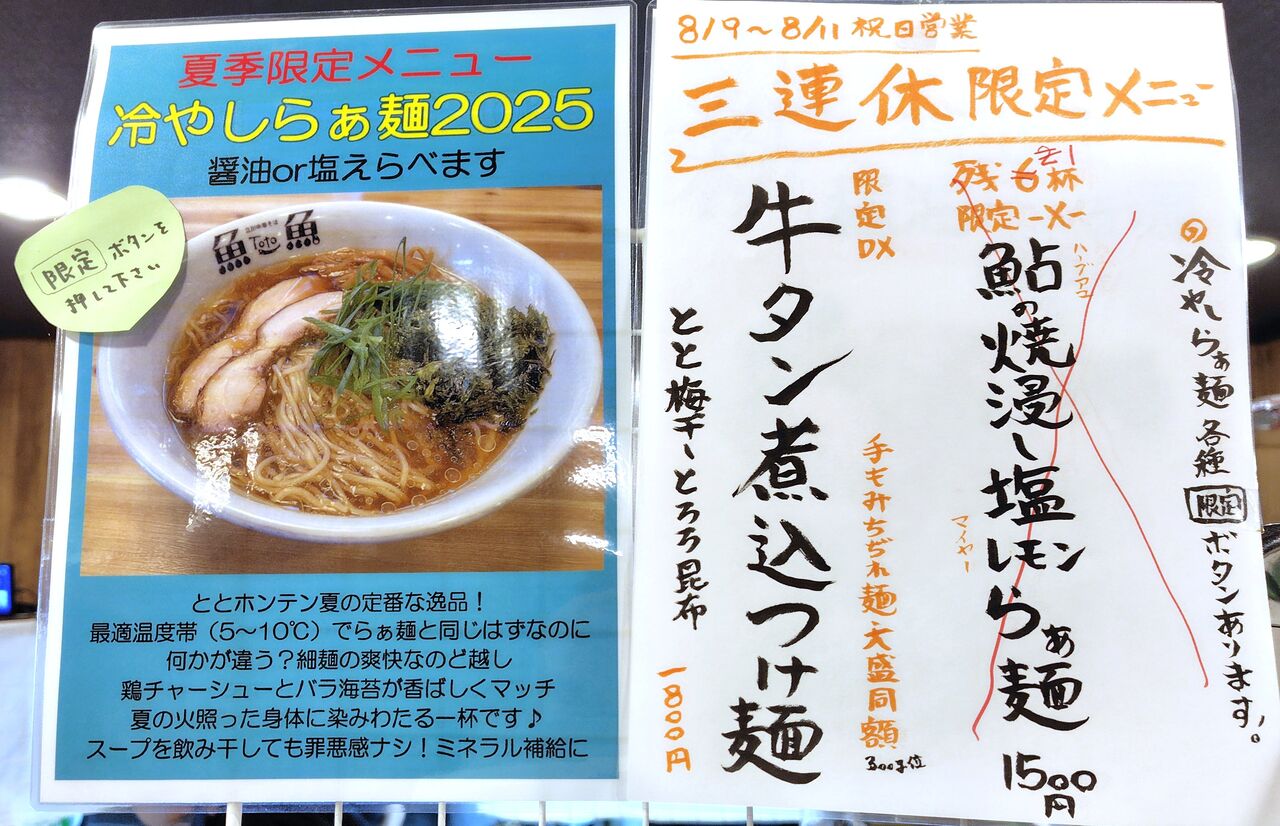 夏季限定メニュー
冷やしらぁ麺2025
醤油or塩えらべます
限定 ボタンを
押して下さい
魚 Toto 魚
ととホンテン夏の定番な逸品！
最適温度帯（5～10℃）でらぁ麺と同じはずなのに
何かが違う？細麺の爽快なのど越し
鶏チャーシューとバラ海苔が香ばしくマッチ
夏の火照った身体に染みわたる一杯です♪
スープを飲み干しても罪悪感ナシ！ミネラル補給に
8/9～8/11 祝日営業
三連休限定メニュー
冷やしらぁ麺各種 限定 ボタンあります。
残6杯
限定-X-
ハーブアユ
鮎の焼浸し塩レモンらぁ麺
マイヤー
1500円
限定DX
手もみちぢれ麺 大盛同額
牛タン煮込つけ麺
とと梅干〜とろろ昆布
1800円